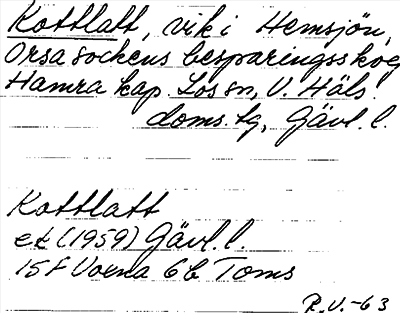 Kottlatt, vik i Hemsjön,
Orsa sockens besparingsskog
Hamra kap. Los sn, V. Häls.
doms.tg, Gävl. l.
Kottlatt
ek (1959) Gävl. l.
15F Voxna 6b Toms
R.V.-63